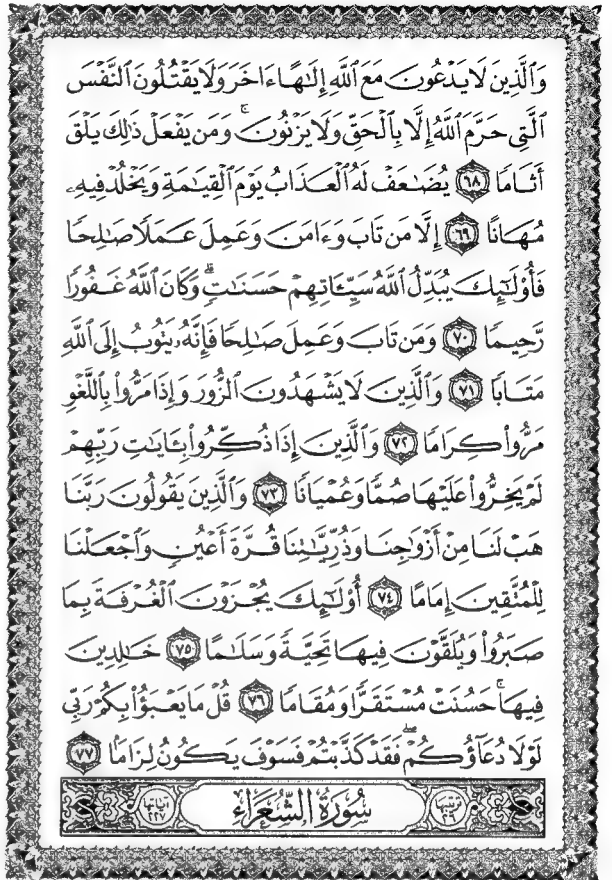 وَٱلَّذِينَ لَا يَدْعُونَ مَعَ ٱللَّهِ إِلَٰهًا ءَاخَرَ وَلَا يَقْتُلُونَ ٱلنَّفْسَ
ٱلَّتِى حَرَّمَ ٱللَّهُ إِلَّا بِٱلْحَقِّ وَلَا يَزْنُونَ ۚ وَمَن يَفْعَلْ ذَٰلِكَ يَلْقَ
أَثَامًا ٦٨ يُضَٰعَفْ لَهُ ٱلْعَذَابُ يَوْمَ ٱلْقِيَٰمَةِ وَيَخْلُدْ فِيهِۦ
مُهَانًا ٦٩ إِلَّا مَن تَابَ وَءَامَنَ وَعَمِلَ عَمَلًا صَٰلِحًا
فَأُو۟لَٰٓئِكَ يُبَدِّلُ ٱللَّهُ سَيِّـَٔاتِهِمْ حَسَنَٰتٍ ۗ وَكَانَ ٱللَّهُ غَفُورًا
رَّحِيمًا ٧٠ وَمَن تَابَ وَعَمِلَ صَٰلِحًا فَإِنَّهُۥ يَتُوبُ إِلَى ٱللَّهِ
مَتَابًا ٧١ وَٱلَّذِينَ لَا يَشْهَدُونَ ٱلزُّورَ وَإِذَا مَرُّوا۟ بِٱللَّغْوِ
مَرُّوا۟ كِرَامًا ٧٢ وَٱلَّذِينَ إِذَا ذُكِّرُوا۟ بِـَٔايَٰتِ رَبِّهِمْ
لَمْ يَخِرُّوا۟ عَلَيْهَا صُمًّا وَعُمْيَانًا ٧٣ وَٱلَّذِينَ يَقُولُونَ رَبَّنَا
هَبْ لَنَا مِنْ أَزْوَٰجِنَا وَذُرِّيَّٰتِنَا قُرَّةَ أَعْيُنٍ وَٱجْعَلْنَا
لِلْمُتَّقِينَ إِمَامًا ٧٤ أُو۟لَٰٓئِكَ يُجْزَوْنَ ٱلْغُرْفَةَ بِمَا
صَبَرُوا۟ وَيُلَقَّوْنَ فِيهَا تَحِيَّةً وَسَلَٰمًا ٧٥ خَٰلِدِينَ
فِيهَا ۚ حَسُنَتْ مُسْتَقَرًّا وَمُقَامًا ٧٦ قُلْ مَا يَعْبَؤُا۟ بِكُمْ رَبِّى
لَوْلَا دُعَآؤُكُمْ ۖ فَقَدْ كَذَّبْتُمْ فَسَوْفَ يَكُونُ لِزَامًا ٧٧
ترتيبها ٢٦ سُورَةُ الشُّعَرَاءِ آياتها ٢٢٧